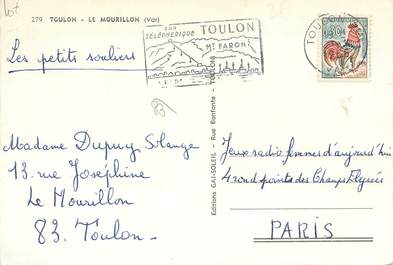 lot
279 TOULON - LE MOURILLON (Var)
SON
TÉLÉPHERIQUE
TOULON
Mt FARON
TOULON
Les petits souliers
83
Madame Dupuy Solange
13 rue Joséphine
Le Mourillon
83. Toulon.
Editions GAI-SOLEIL - Rue Bonfante - TOULON
Jeux radio femmes d'aujourd'hui
4 rond points des Champs Elysées
PARIS